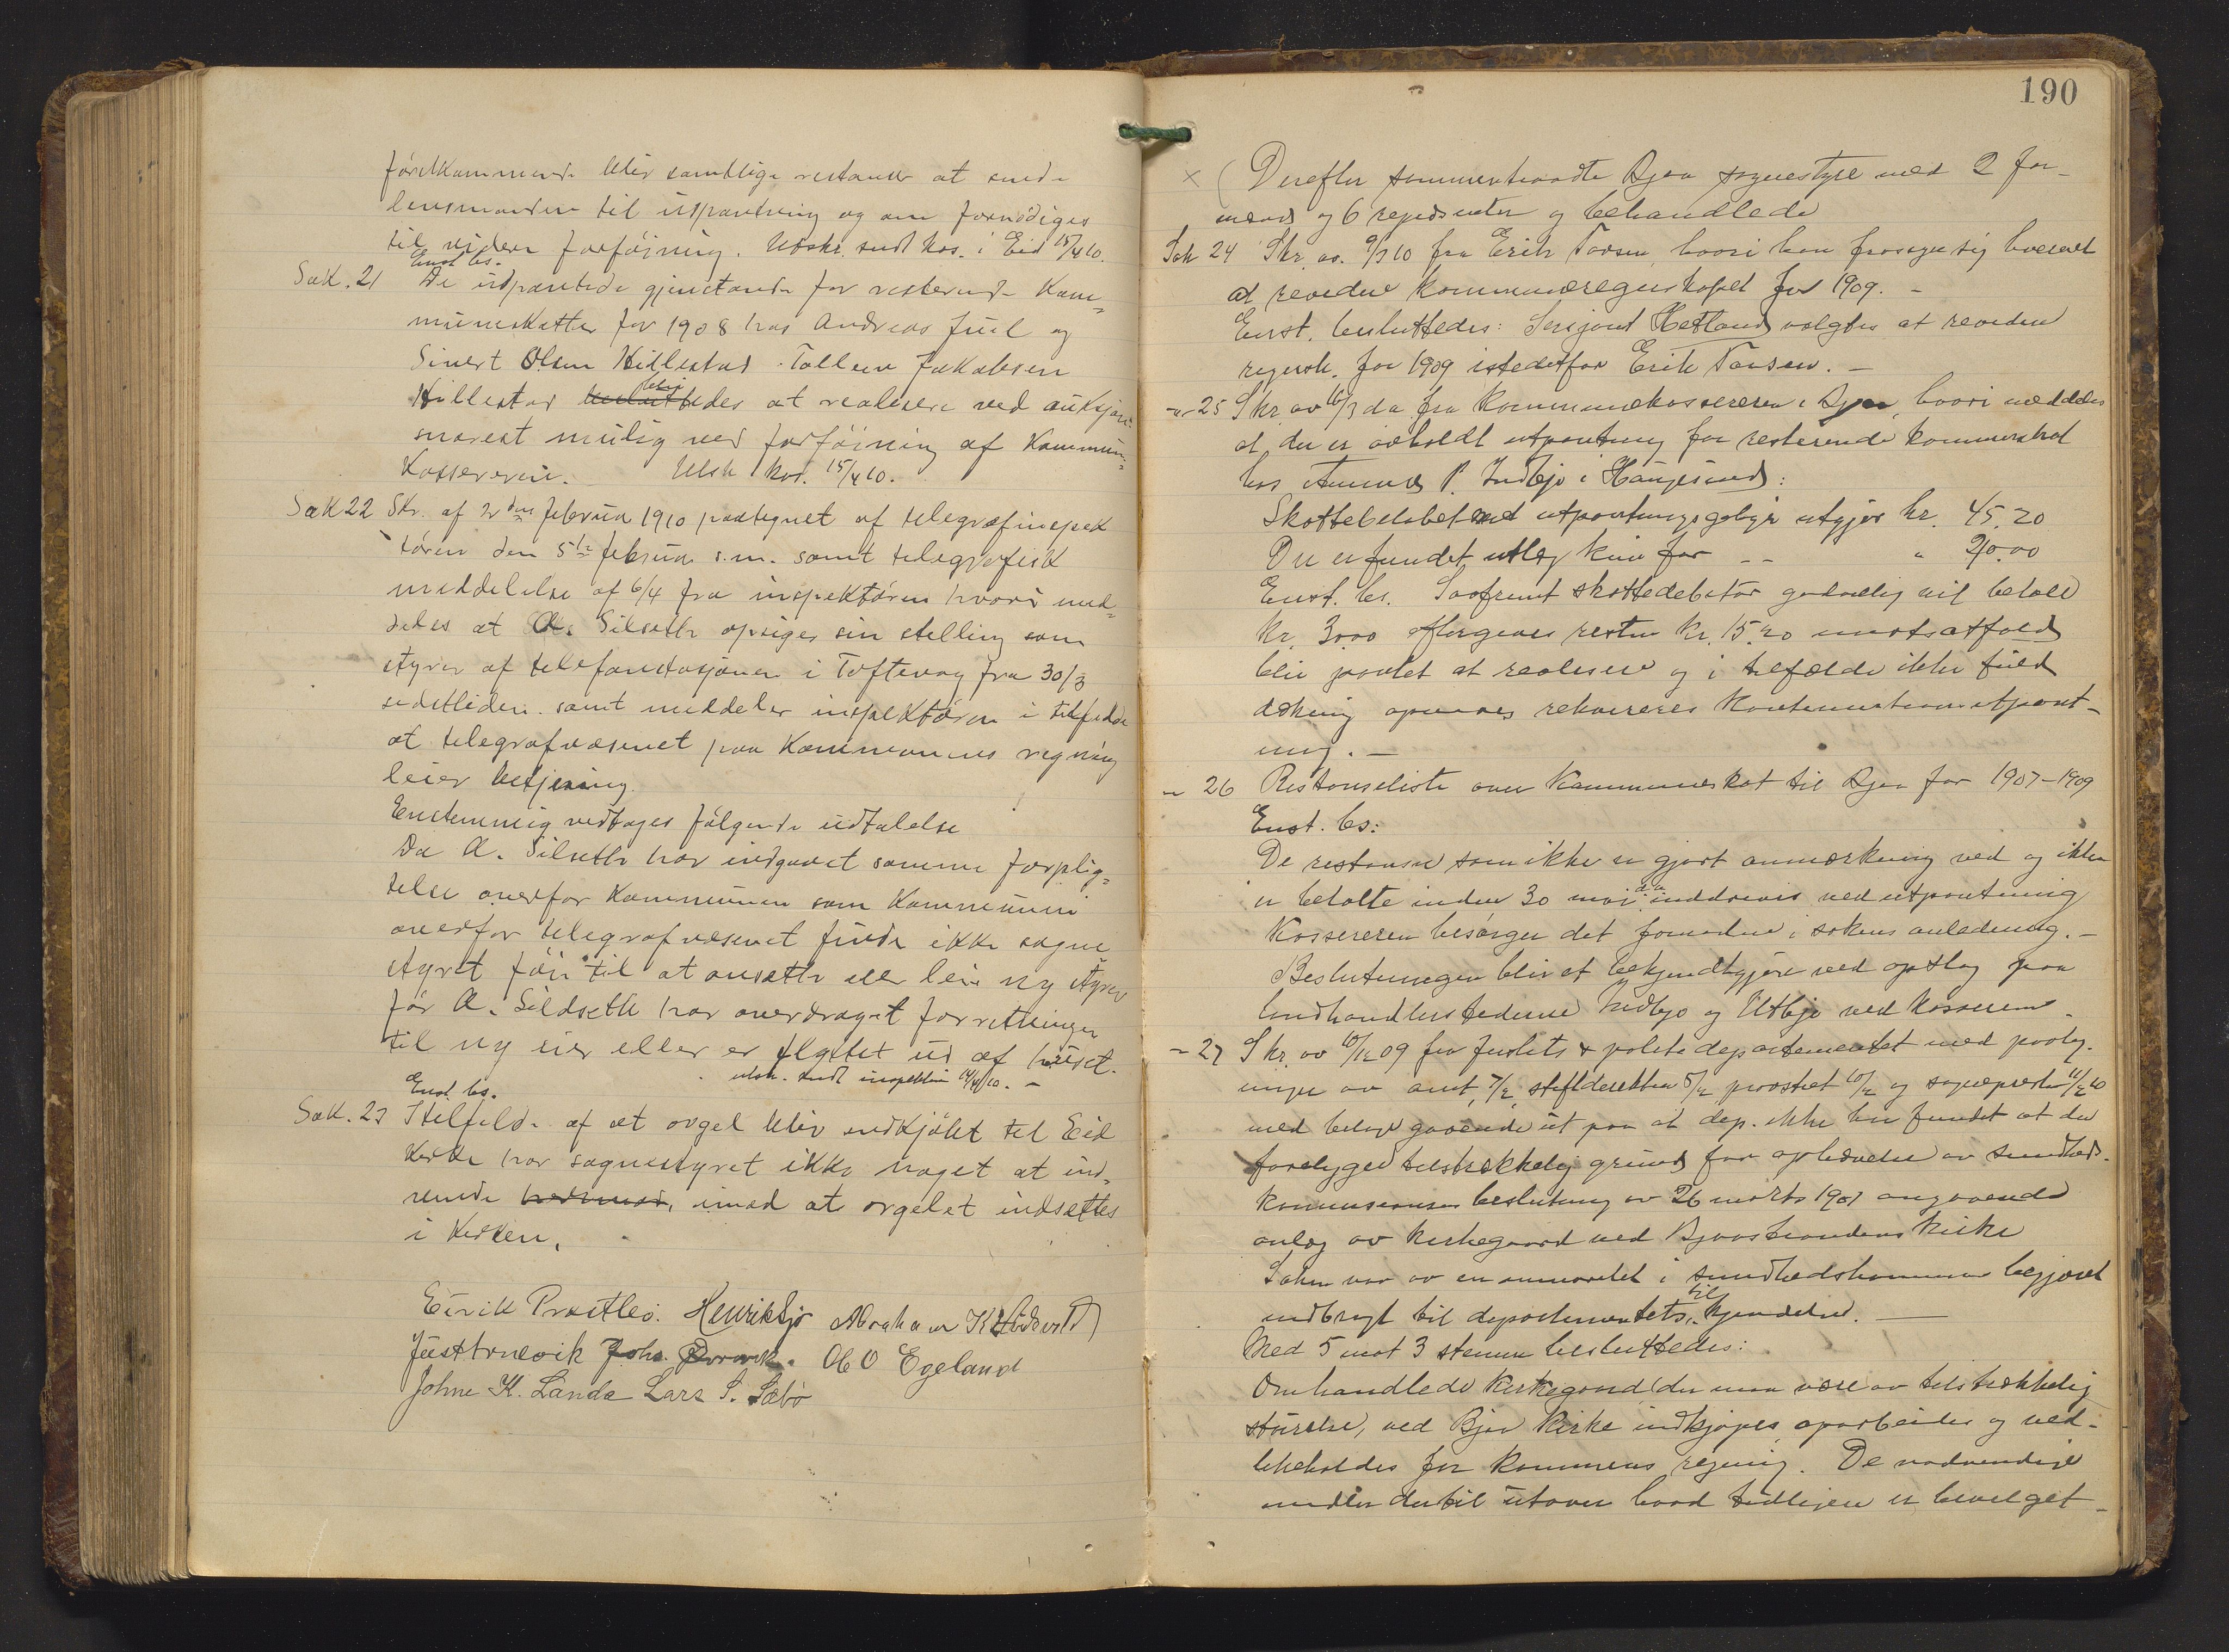 förekommende blir samtlige restanser at sende
lensmanden til utspantning og om fornødiges
til videre forføining. Utskr. sendt kas. i Eid 15/4 10.
Enst. bs.
Sak. 21 De utpantede gjenstande for resterende Kom=
muneskatter for 1908 hos Andreas Juel og
Sivert Olsen Hillestad Tollew Jakobsen
Hillestad blir at realisere ved auksjon
snarest mulig ved forföining af Kommun=
Kassereren. Utsk kas. 15/4 10.
Sak 22 Skr. af 2den februar 1910 paategnet af telegrafinspek
tören den 5te februar s.m. samt telegrafisk
meddelelse af 6/4 fra inspektören hvori med=
deles at A. Silseth opsiger sin stelling som
styrer af telefonstasjonen i Toftevag fra 30/3
sidstleden. samt meddeler inspektören i tilfelde
at telegrafvæsenet paa Kommunens regning
leier betjening.
Enstemmig vedtages fölgende udtalelse
Da A. Silseth har indgaaet samme forplig=
telse overfor Kommunen som Kommunen
overfor telegrafvesenet finder ikke sogne
styret föie til at ansette eller leie ny styrer
før A. Sildseth har overdraget forretningen
til ny eier eller er flyttet ud af huset.
utsk. sendt inspektören 14/4 10. –
Enst. bs.
Sak. 23 I tilfelde af at orgel blir indkjöbt til Eid
Kirke har sognestyret ikke noget at ind=
vende imod at orgelet indsettes
i Kirken.
Eirik Prestbø. Henrik Sjo Abraham K
Ole O Egeland
Johne K. Landa Lars S. Sæbø
190
× ( Derefter sammentraadte Bjoa sognestyre med 2 for-
mænd og 6 representer og behandlede
Sak 24 Skr. av. 9/3 10 fra Erik Tarsen, hvori han frasiger sig hvervet
at revidere kommuneregnskapet for 1909. –
Enst. besluttedes: Sersjant Hetland valgtes at revidere
regnsk. for 1909 istedetfor Erik Tarsen. –
– 25 Skr av 16/3 da. fra kommunekassereren i Bjoa, hvori meddeles
at der er avholdt utpantning for resterende kommuneskat
hos P. Indbjo i Haugesund:
Skattebeløbet med utpantningsgebyr utgjør kr. 45.20
Der er fundet utlæg kun for – – " 20.00
Enst. bs. Saafremt skattedebitor godvillig vil betale
kr. 30.00 eftergives resten kr. 15.20 motsatfald
blir pantet at realisere og i tilfælde ikke fuld
dekning opnaaes rekvireres kontinuationsutpant-
ning. –
– 26 Restanseliste over Kommuneskat til Bjoa for 1907–1909
Enst. bs:
De restanser som ikke er gjort anmerkning ved og ikke
er betalte inden 30 mai d.a. inddrives ved utpantning
Kassereren besørger det fornødne i sakens anledning. –
Beslutningen blir at bekjendtgjøre ved opslag paa
landhandlerstederne Indbjo og Utbjo ved kassereren.
– 27 Skr. av 10/12 09 fra justits & politidepartementet med paateg-
ninger av amt. 7/2, stiftsdirektion 8/2, provstiet 10/2 og sogneprest 11/2 10
med bilage gaaende ut paa at dep. ikke har fundet at der
foreligger tilstrækkelig grund for ophævelse av sundheds-
kommisionens beslutning av 26 marts 1907 angaaende
anlæg av kirkegaard ved Bjoastrandens kirke
Saken var av en minoritet i sundhedskommissionen begjæret
indbragt til departementets til kjendelse. –
Med 5 mot 3 stemmer besluttedes:
Omhandlede kirkegaard (der maa være av tilstrækkelig
størrelse, ved Bjoa kirke indkjøpes, oparbeides og ved-
likeholdes for kommunens regning. De nødvendige
midler dertil utover hvad tidligere er bevilget –